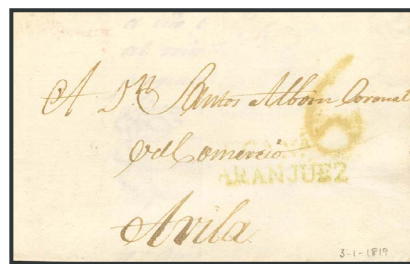 A Dn Santos Alboin Coronal
6
del Comercio
ARANJUEZ
Avila
3-1-1819